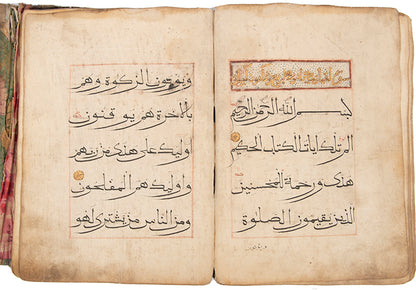 بسم الله الرحمن الرحيم
الم تلك ايات الكتاب الحكيم
هدى ورحمة للمحسنين
الذين يقيمون الصلوة
ويوتون الزكوة وهم
بالاخرة هم يوقنون
اوليك على هدى من ربهم
واوليك هم المفلحون
ومن الناس من يشترى لهو